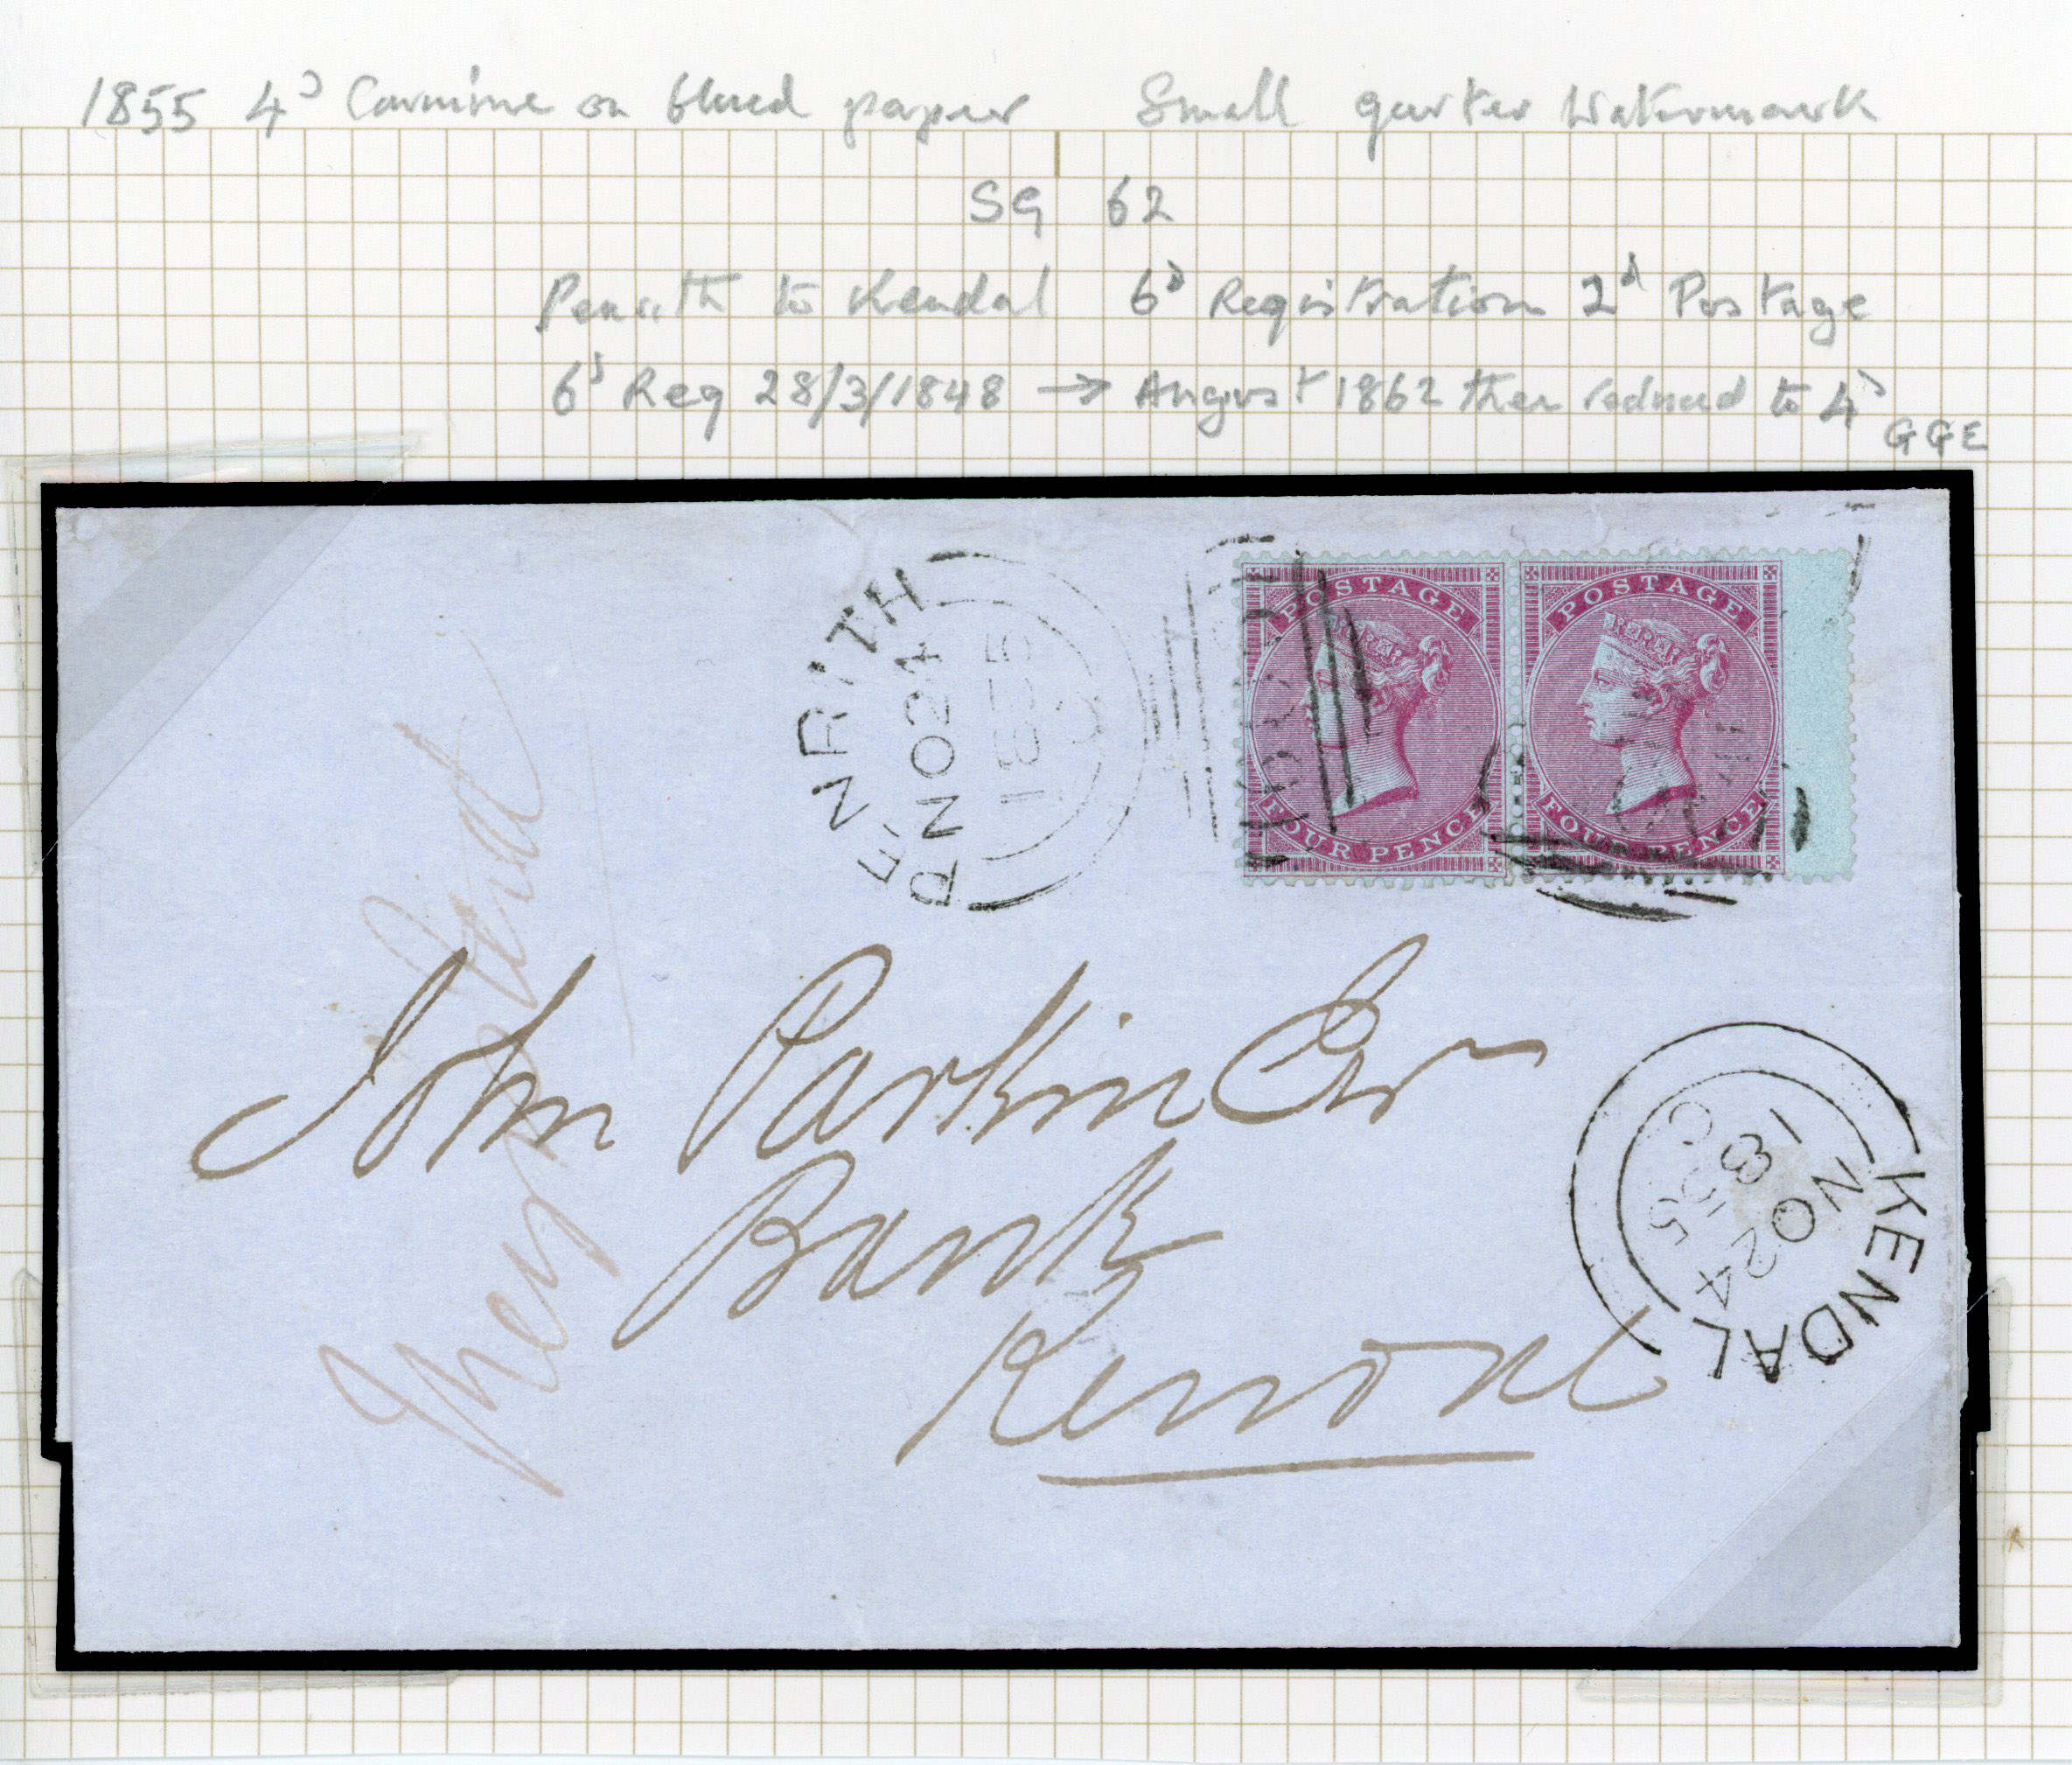 1855 4ᵈ Carmine on blued paper Small garter Watermark
SG 62
Penrith to Kendal 6ᵈ Registration 2ᵈ Postage
6ᵈ Reg 28/3/1848 → August 1862 then reduced to 4ᵈ
GGE
PENRITH
NO 24
1855
POSTAGE
FOUR PENCE
POSTAGE
FOUR PENCE
John Parkin
Bank
Kendal
KENDAL
NO 24
1855
C